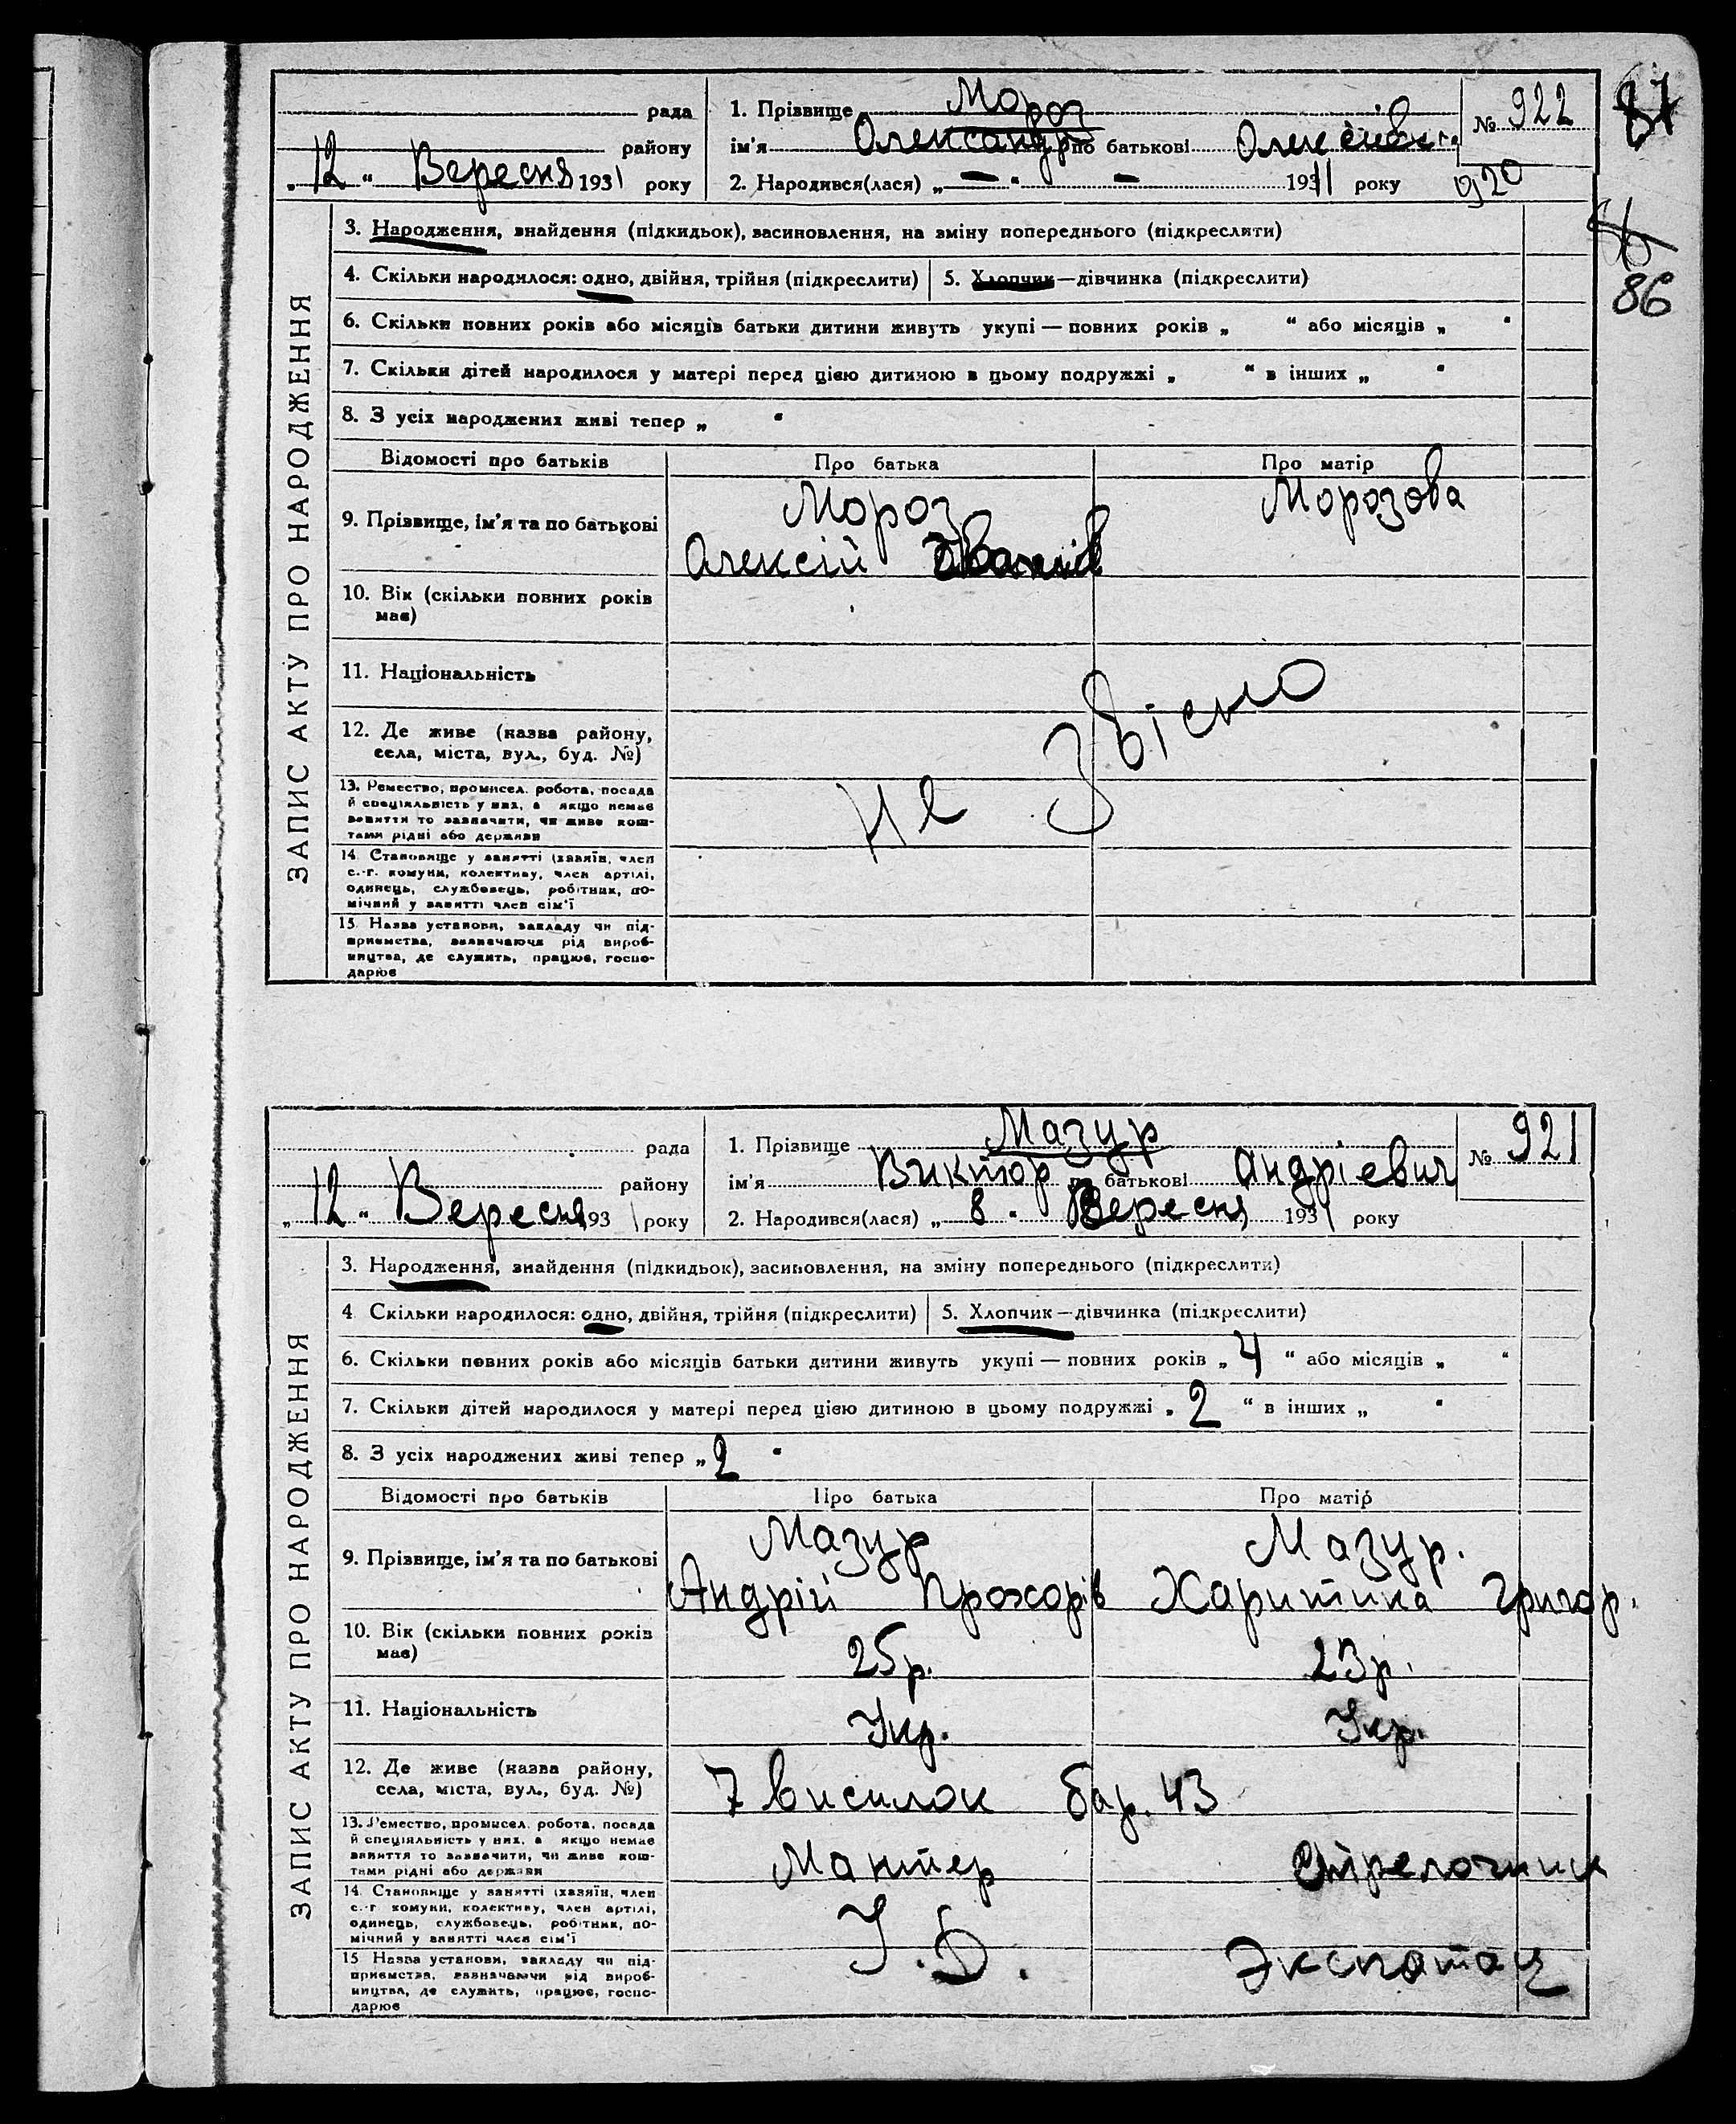 рада
району
„12“ Вересня 1931 року
1. Прізвище Мороз
ім'я Олександр по батькові
2. Народився(лася) „—“ — 1931 року
№ 922
920
87
86
ЗАПИС АКТУ ПРО НАРОДЖЕННЯ
3. Народження, знайдення (підкидьок), засиновлення, на зміну попереднього (підкреслити)
4. Скільки народилося: одно, двійня, трійня (підкреслити) 5. Хлопчик—дівчинка (підкреслити)
6. Скільки повних років або місяців батьки дитини живуть укупі — повних років „ “ або місяців „ “
7. Скільки дітей народилося у матері перед цією дитиною в цьому подружжі „ “ в інших „ “
8. З усіх народжених живі тепер „ “
Відомості про батьків Про батька Про матір
9. Прізвище, ім'я та по батькові Мороз Морозова
Олексій
10. Вік (скільки повних років
має)
11. Національність
12. Де живе (назва району,
села, міста, вул., буд. №)
не звісно
13. Ремество, промисел, робота, посада
й спеціяльність у них, а якщо немає
заняття то зазначити, чи живе кош-
тами рідні або держави
14. Становище у занятті (хазяїн, член
с.-г. комуни, колективу, член артілі,
одинець, службовець, робітник, по-
мічний у занятті член сім'ї
15. Назва установи, закладу чи під-
приємства, зазначаючи рід вироб-
ництва, де служить, працює, госпо-
дарює
рада
району
„12“ Вересня 1931 року
1. Прізвище Мазур
ім'я Виктор по батькові Андріевич
2. Народився(лася) „8“ Вересня 1931 року
№ 921
ЗАПИС АКТУ ПРО НАРОДЖЕННЯ
3. Народження, знайдення (підкидьок), засиновлення, на зміну попереднього (підкреслити)
4 Скільки народилося: одно, двійня, трійня (підкреслити) 5. Хлопчик—дівчинка (підкреслити)
6. Скільки повних років або місяців батьки дитини живуть укупі — повних років „4“ або місяців „ “
7. Скільки дітей народилося у матері перед цією дитиною в цьому подружжі „2“ в інших „ “
8. З усіх народжених живі тепер „2“
Відомості про батьків Про батька Про матір
9. Прізвище, ім'я та по батькові Мазур Мазур.
Андрій Прохорів Харитина Григор.
10. Вік (скільки повних років
має) 25р. 23р.
11. Національність Укр. Укр.
12. Де живе (назва району,
села, міста, вул., буд. №) 7 висилок бар. 43
13. Ремество, промисел, робота, посада
й спеціяльність у них, а якщо немає
заняття то зазначити, чи живе кош-
тами рідні або держави
Монтер Стрелочник
14. Становище у занятті (хазяїн, член
с.-г. комуни, колективу, член артілі,
одинець, службовець, робітник, по-
мічний у занятті член сім'ї
15 Назва установи, закладу чи під-
приємства, зазначаючи рід вироб-
ництва, де служить, працює, госпо-
дарює